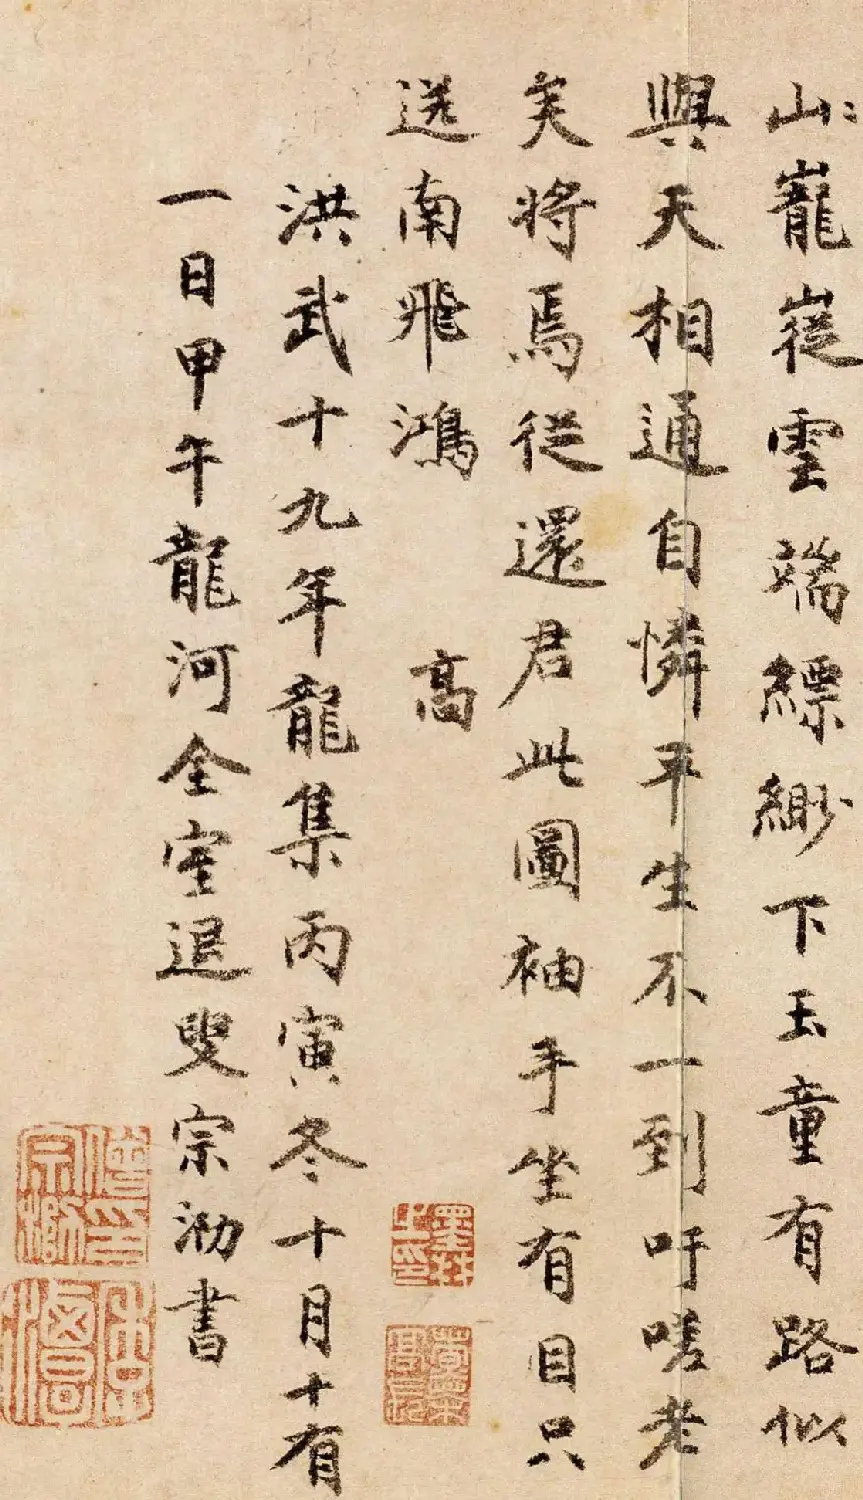 山〻巃嵸雲端縹緲下玉童有路似
與天相通自憐平生不一到吁嗟老
矣將焉從還君此圖袖手坐有目只
送南飛鴻 高
洪武十九年龍集丙寅冬十月十有
一日甲午龍河全室退叟宗泐書
墨林山人